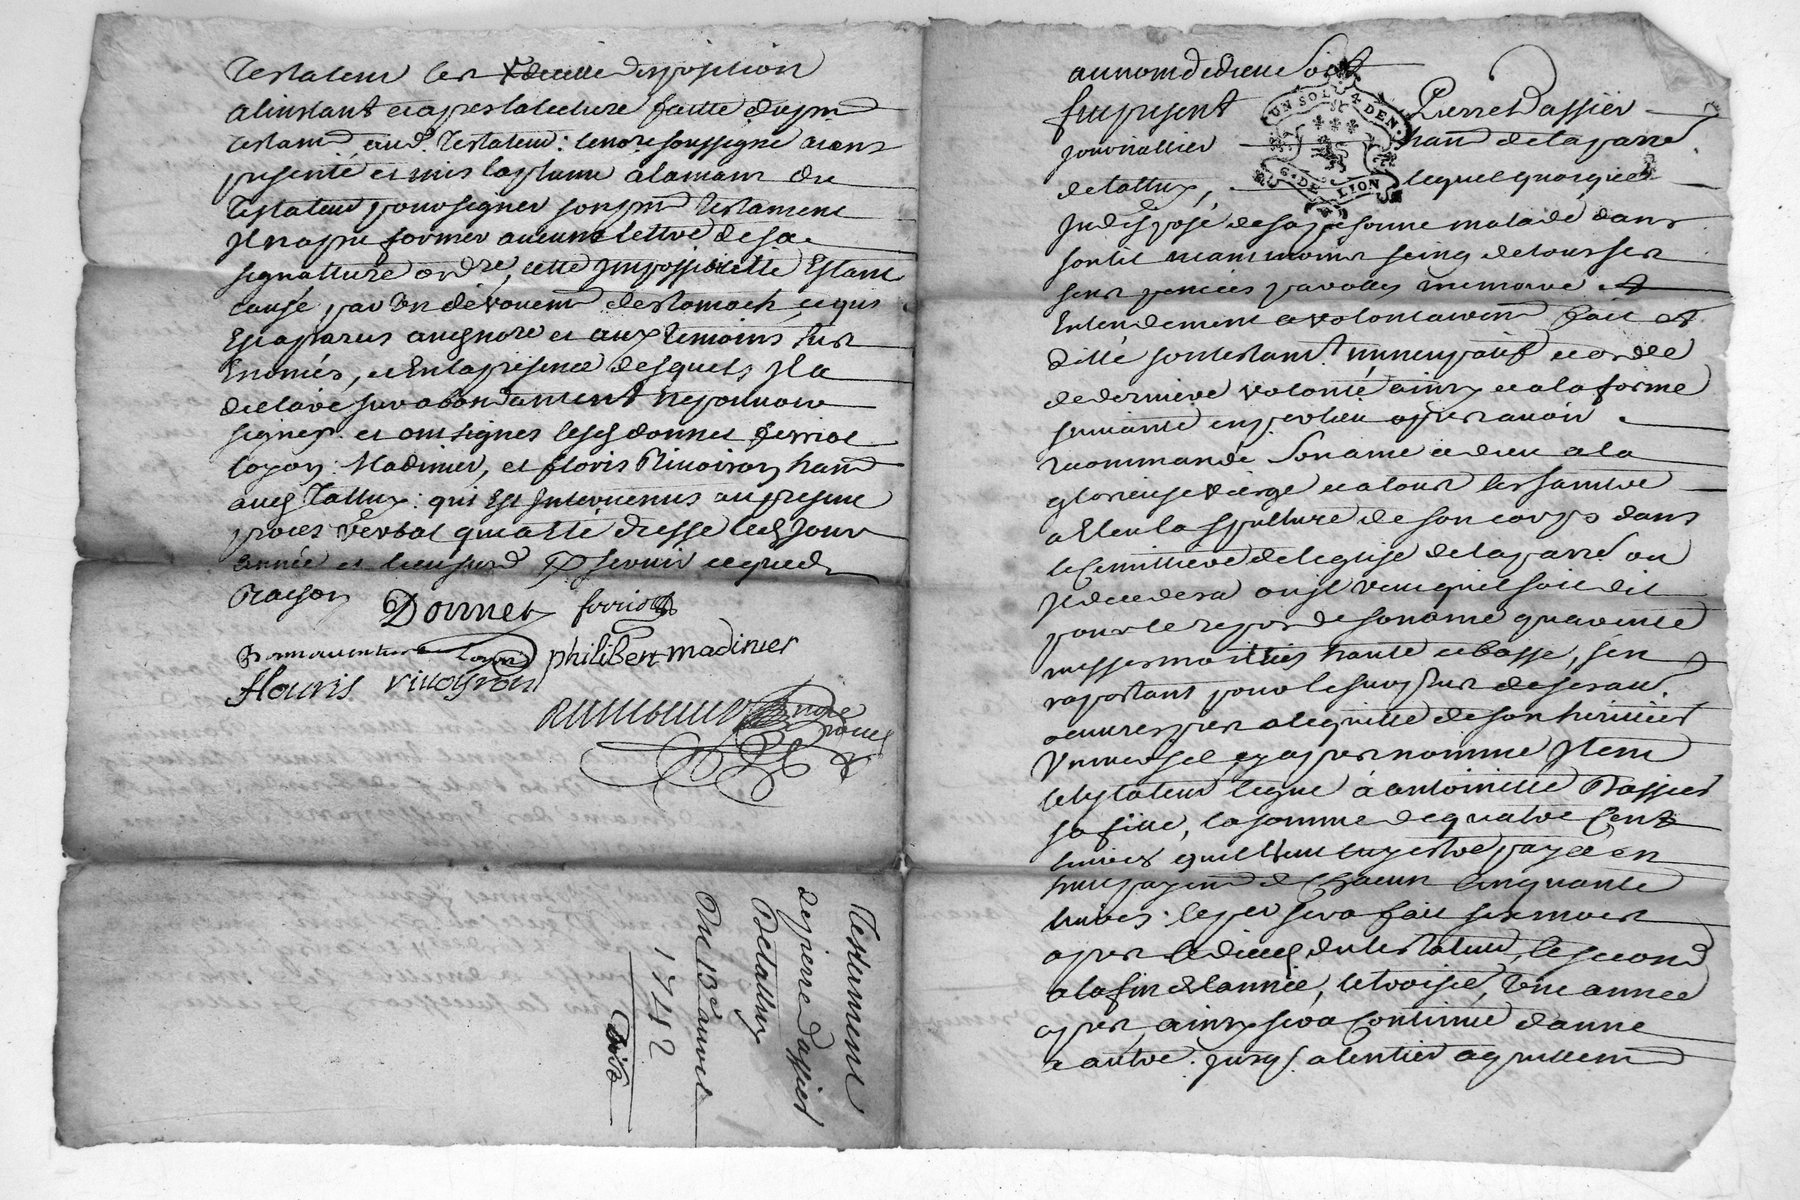 testateur les
disposition
alinstant et apres la lecture faitte du pnt
testamt aud. testateur: le nore soussigné aiant
presenté et mis la plume a la main du
testateur pour signer son pnt testament
Jl na pu former aucune lettre de sa
signatture ordre, cette Jmpossibilitté Estant
causé par un dévoiemt destomach, ce qui
Est aparus aud nore et aux temoins sus
Enomés, et En la presence desquels Jl a
declaré surabondament ne pouvoir
signer et ont signés lesd donnet ferriot
loyon Madinier, et floris Vinoison hant
aud tallux: qui Est Jntervenus au present
proces verbal qui a été dressé led Jour
année et lieu susd P servir ce que de
Raison
Donnet ferriot
Bonnaventure loyon philibert madinier
flouris
nore
Royal
Testament
de pierre Dassier
de tallux
Du 13e avril
1742
au nom de dieu soit
UN SOL 4 DEN.
G. DE LION
fut present Pierre Dassier
journallier hant de la parre
de tallux, lequel quoique
Jndisposé de sa personne malade dans
son lit neanmoins saing de tous ses
sens pencées parolles memoire et
Entendement a volontairemt fait et
ditté son testamt nuncupatif et ordre
de derniere volonté ainsy et a la forme
suivante en pr lieu apres avoir
recommandé son ame a dieu a la
glorieuse vierge et a tous les saints
a Elu la sepulture de son corps dans
le cemittiere de leglise de la parre ou
Jl decedera ou Jl veut quil soit dit
pour le repos de son ame quarente
messes moitiés haute et basse, sen
raportant pour le surplus de ses au.
oeuvres pies a legailité de son heritier
Universel cy apres nommé Jtem
le testateur legue a antoinette Dassier
sa fille, la somme de quatre cent
livres quil veut luy estre payée en
huit payemt de chacun cinquante
livres. le per sera fait six mois
apres le deces du testateur, le second
a la fin de lannée, le troisie. une année
apres, ainsy sera continué danné
a autre. jusq. a lentier aquittemt